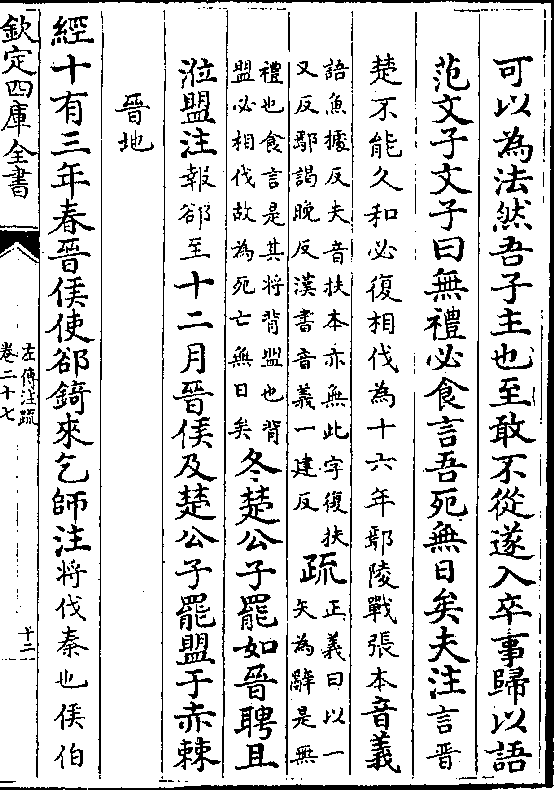 可以為法然吾子主也至敢不從遂入卒事歸以語
范文子文子曰無禮必食言吾死無日矣夫注言晉
楚不能久和必復相伐為十六年鄢陵戰張本音義
語魚據反夫音扶本亦無此字復扶
又反鄢謁晚反漢書音義一建反
疏
正義曰以一
矢為辭是無
禮也食言是其將背盟也背
盟必相伐故為死亡無日矣
冬楚公子罷如晉聘且
涖盟注報郤至十二月晉侯及楚公子罷盟于赤棘
晉地
經十有三年春晉侯使郤錡來乞師注將伐秦也侯伯
欽定四庫全書
左傳注疏
卷二十七
十二